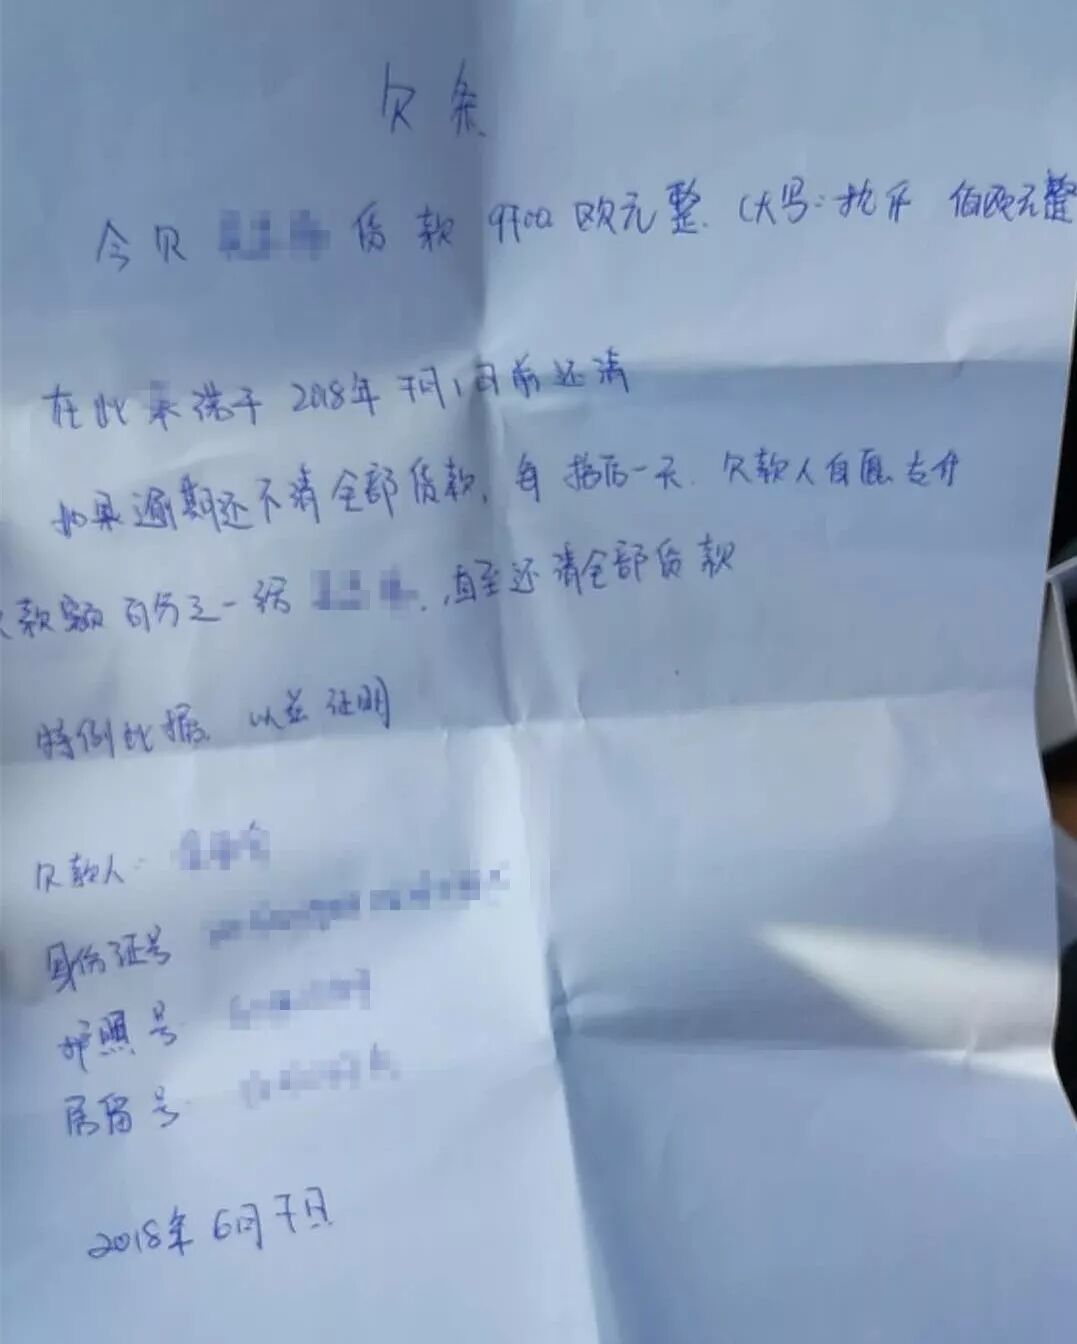 欠条
今欠 货款 9700 欧元整.(大写: 伯欧元整
在此承诺于 2018年 7月1日前还清
如果逾期还不清全部货款,每 拖后一天.欠款人自愿支付
欠款额百分之一给 .直至还清全部货款
特例此据.以兹证明
欠款人:
身份证号
护照号
居留号
2018年6月 日